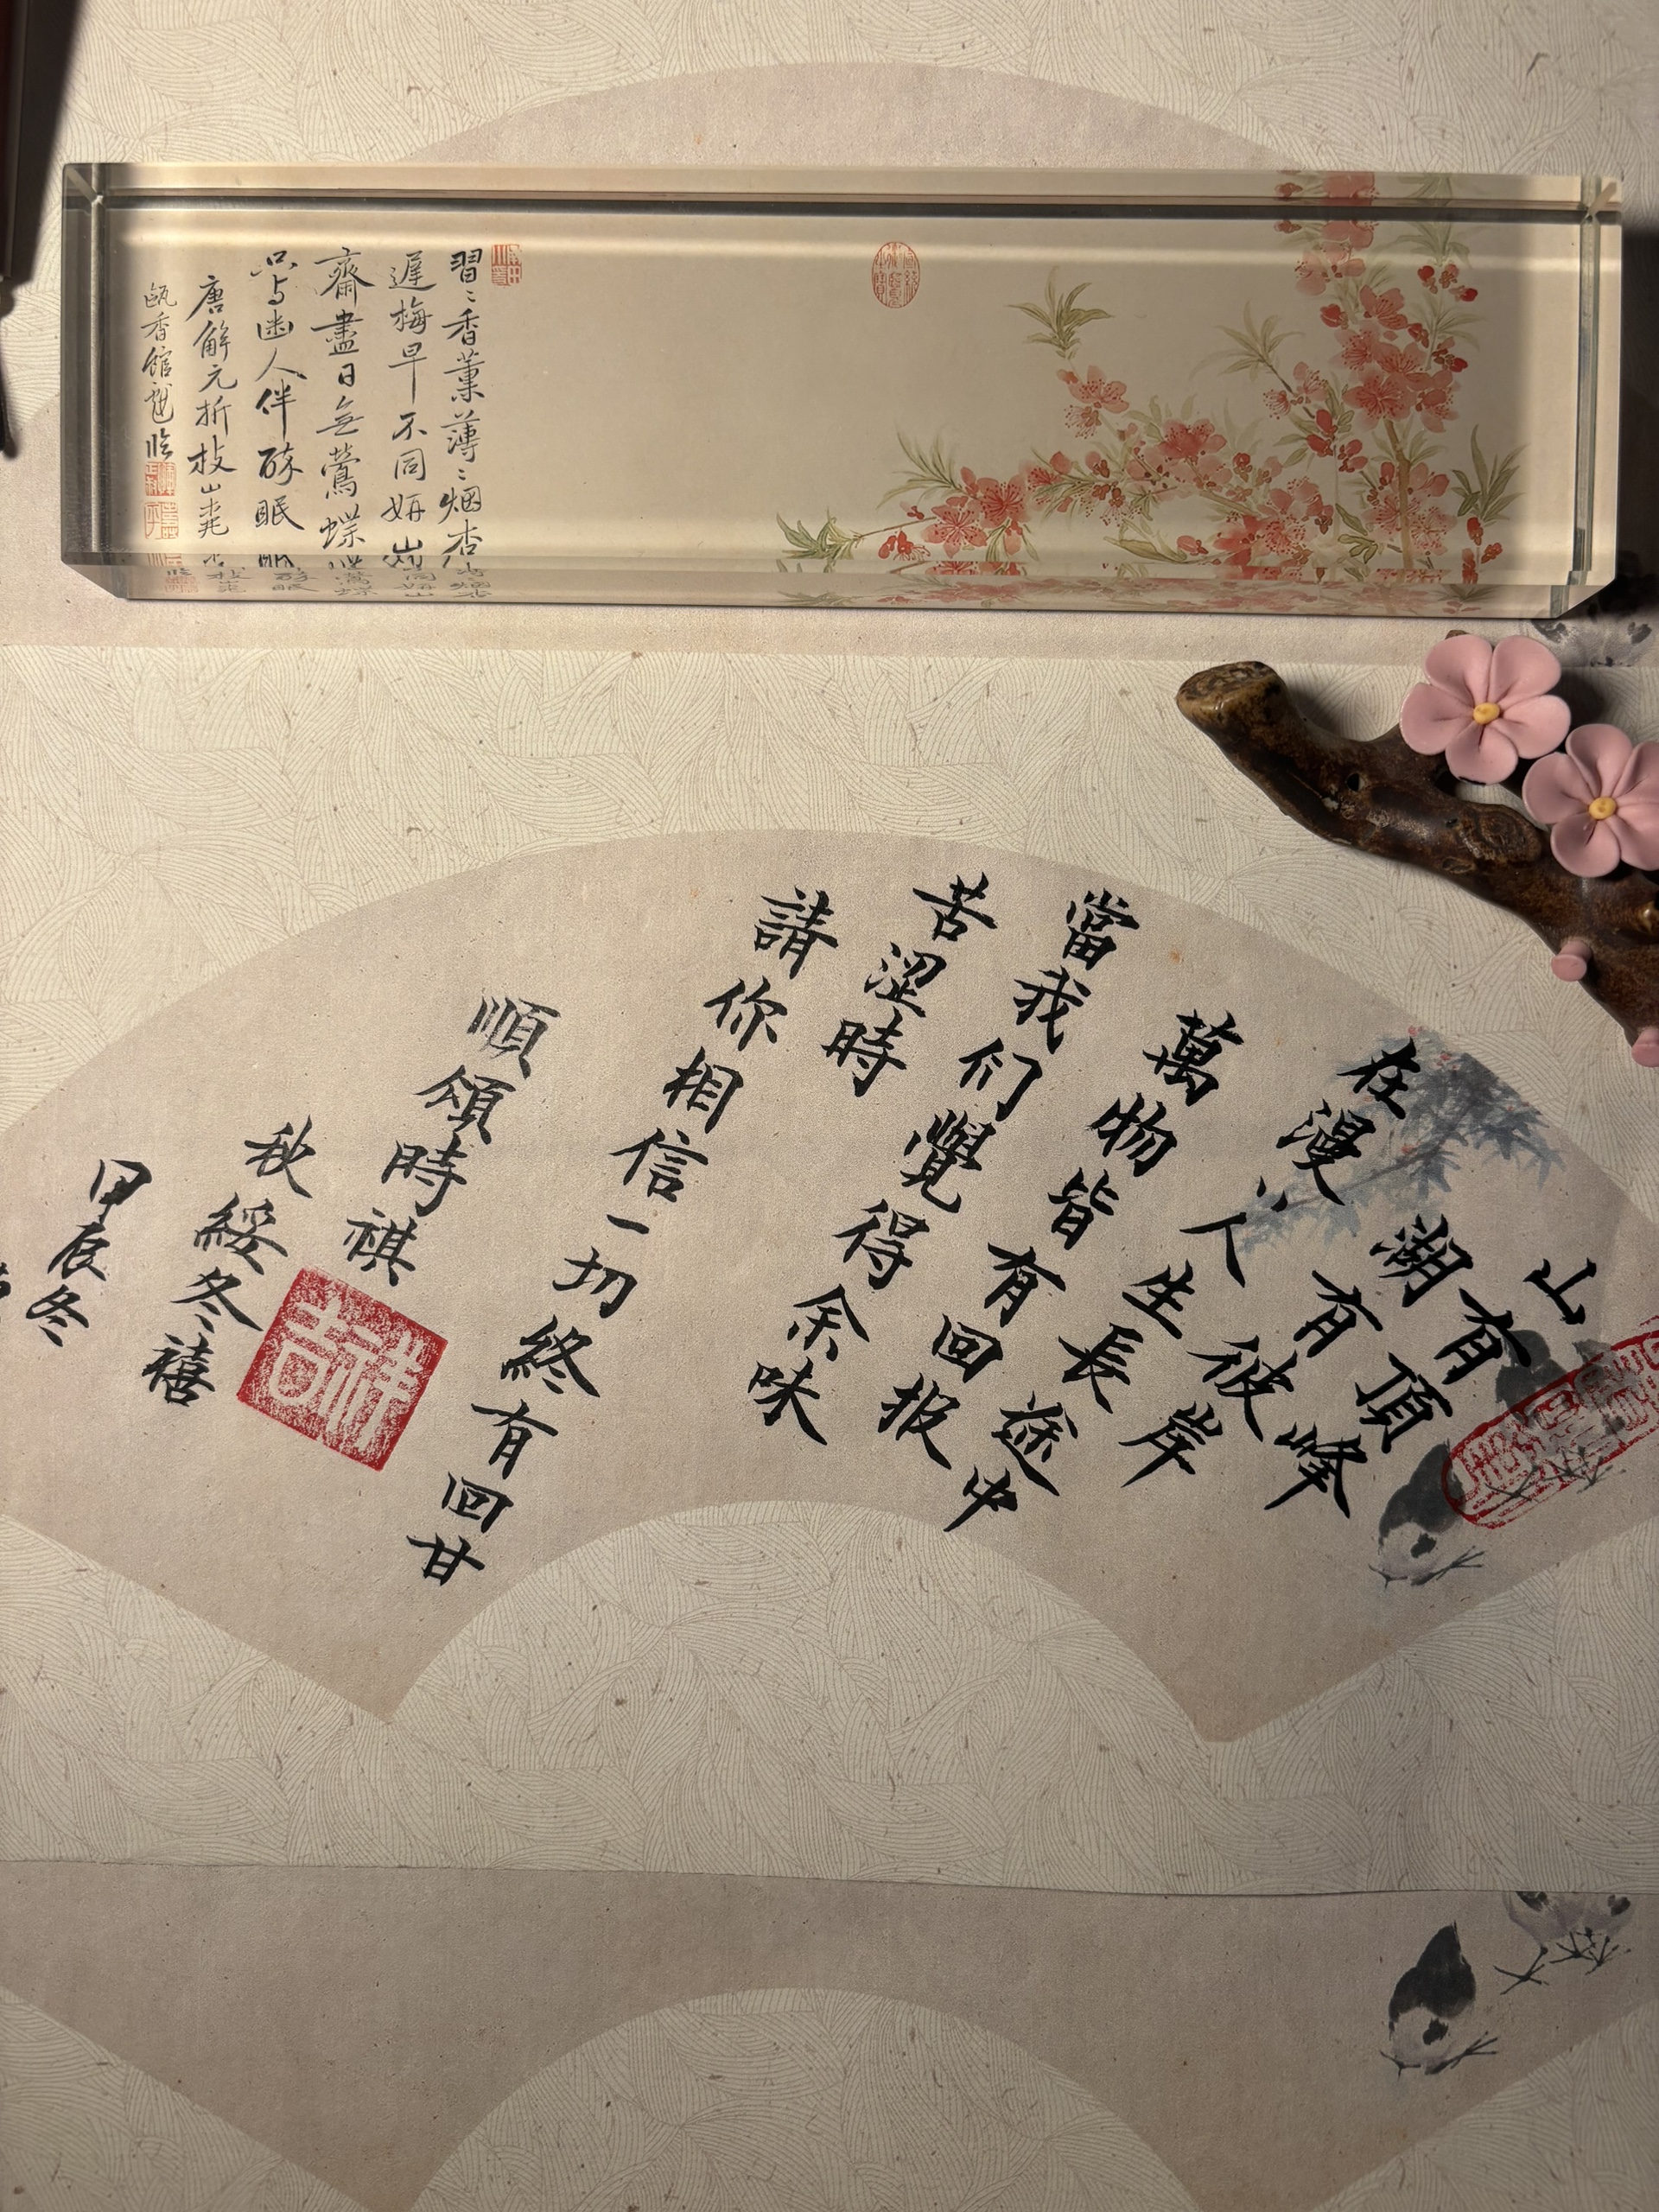 習〻香薰薄〻烟杏
遲梅早不同妍山
齋盡日無鶯蝶
只与幽人伴醉眠
唐解元折枝山桃
甌香館
臨
山有頂峰
湖有彼岸
在漫〻人生長途中
萬物皆有回报
當我们覺得余味
苦涩時
請你相信一切終有回甘
順頌時祺
秋綏冬禧
吉祥
甲辰冬